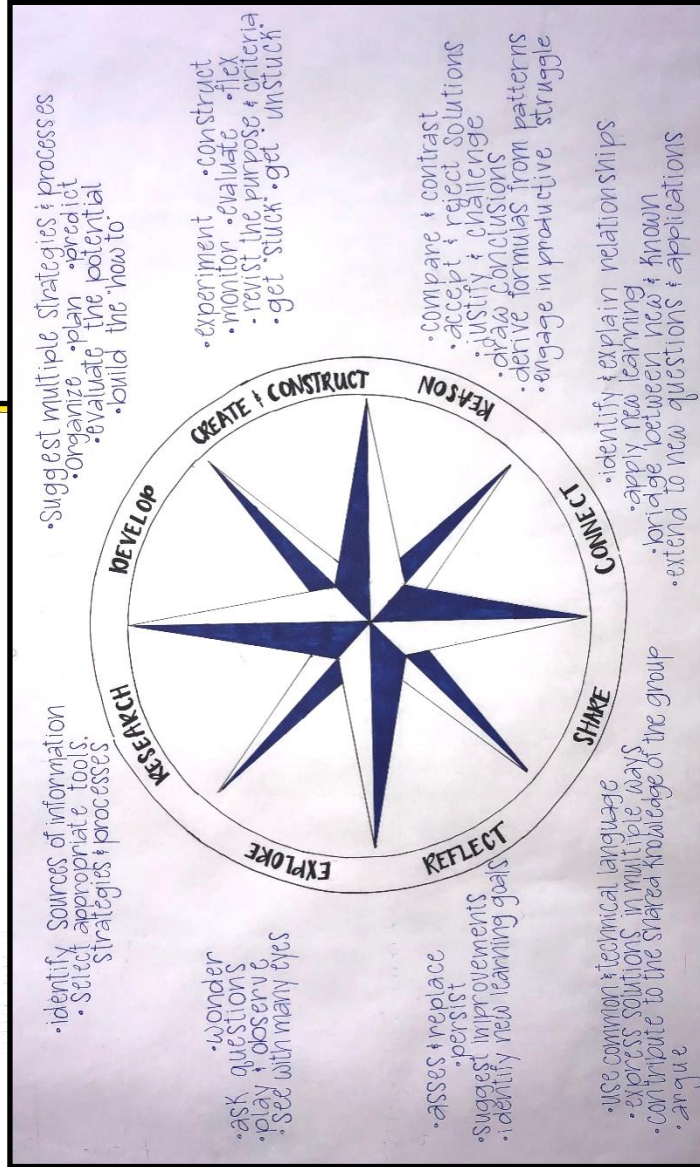 EXPLORE
•wonder
•ask questions
•play & observe
•see with many eyes
RESEARCH
•identify sources of information
•Select appropriate tools,
strategies & processes
DEVELOP
•Suggest multiple strategies & processes
•organize •plan •predict
•evaluate the potential
•build the "how to"
CREATE & CONSTRUCT
•experiment •construct
•monitor •evaluate •flex
•revist the purpose & criteria
•get "stuck" •get "unstuck"
REASON
•compare & contrast
•accept & reject solutions
•justify & challenge
•draw conclusions
•derive formulas from patterns
•engage in productive struggle
CONNECT
•identify & explain relationships
•apply new learning
•bridge between new & known
•extend to new questions & applications
SHARE
•use common & technical language
•express solutions in multiple ways
•contribute to the shared knowledge of the group
•argue
REFLECT
•asses & replace
•persist
•suggest improvements
•identify new learning goals